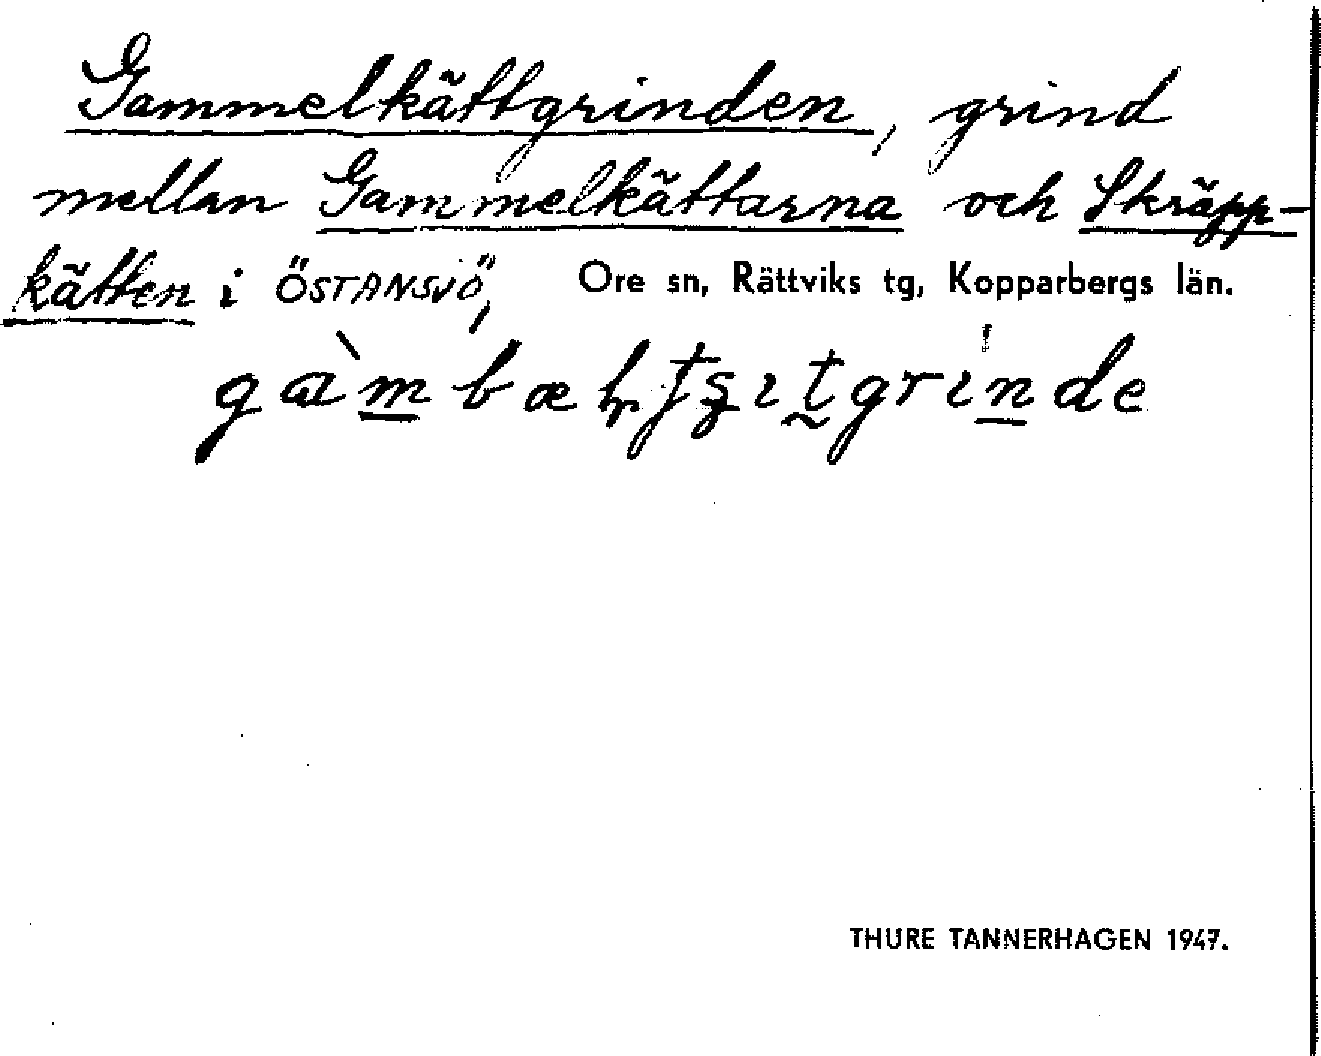 Gammelkättgrinden, grind
mellan Gammelkättarna och Skräpp-
kätten i ÖSTANSJÖ, Ore sn, Rättviks tg, Kopparbergs län.
THURE TANNERHAGEN 1947.